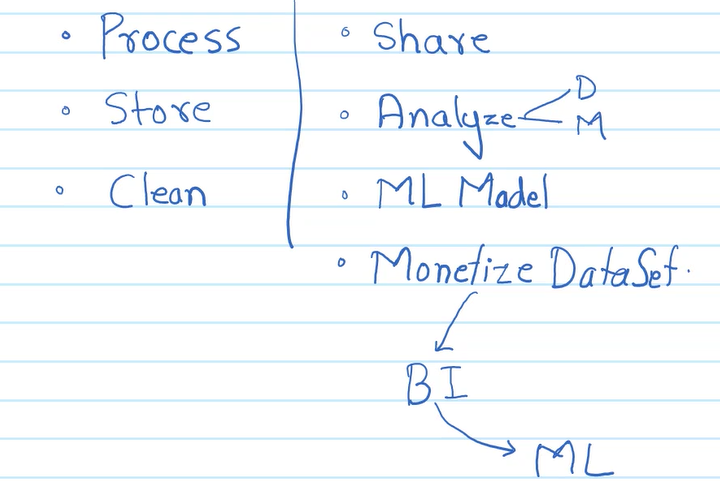 Process
Store
Clean
Share
Analyze
D
M
ML Model
Monetize DataSet.
BI
ML